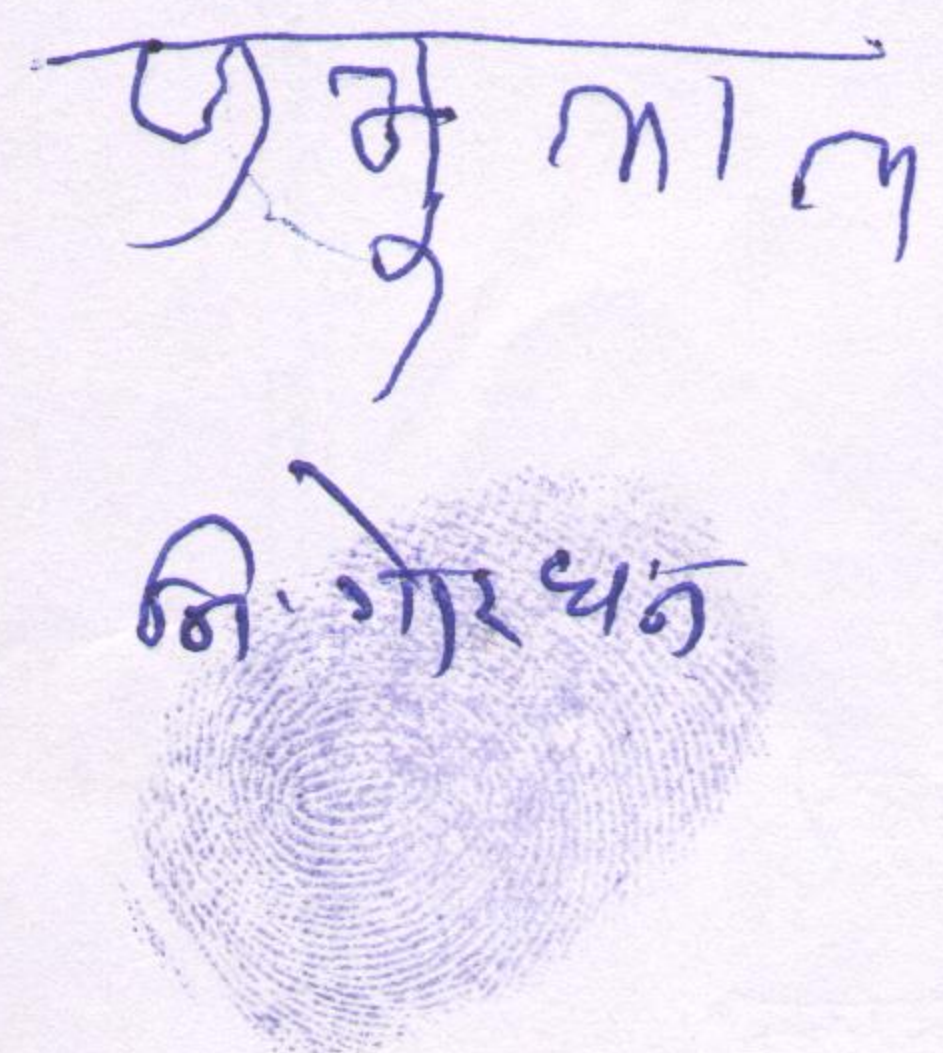 प्रभुलाल
नि. गोरधन